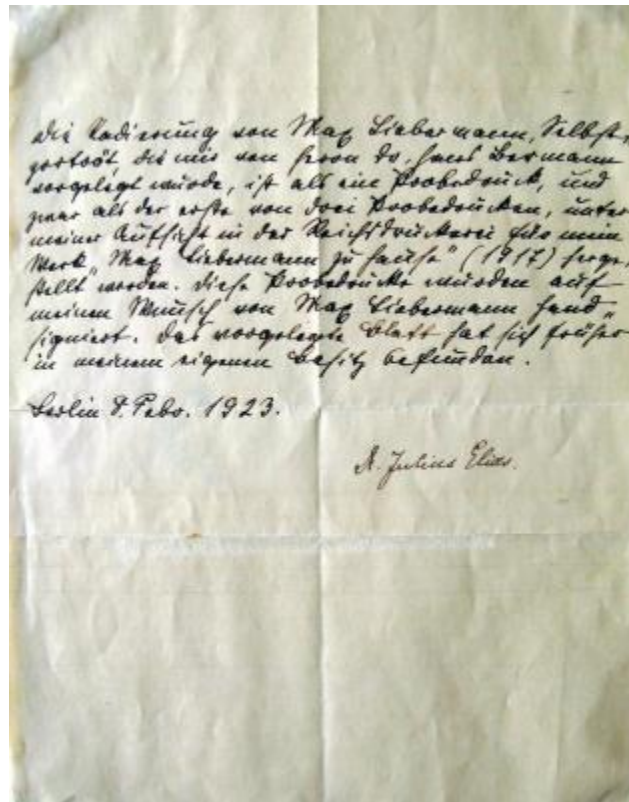 Die Radierung von Max Liebermann, Selbst-
porträt, die mir von Herrn Dr. Hans Bermann
vorgelegt wurde, ist als ein Probedruck, und
zwar als der erste von drei Probedrucken, unter
meiner Aufsicht in der Reichsdruckerei für mein
Werk „Max Liebermann zu Hause" (1917) herge-
stellt worden. Diese Probedrucke wurden auf
meinen Wunsch von Max Liebermann hand-
signiert. Das vorgelegte Blatt hat sich früher
in meinem eigenen Besitz befunden.
Berlin 8. Febr. 1923.
Dr. Julius Elias.